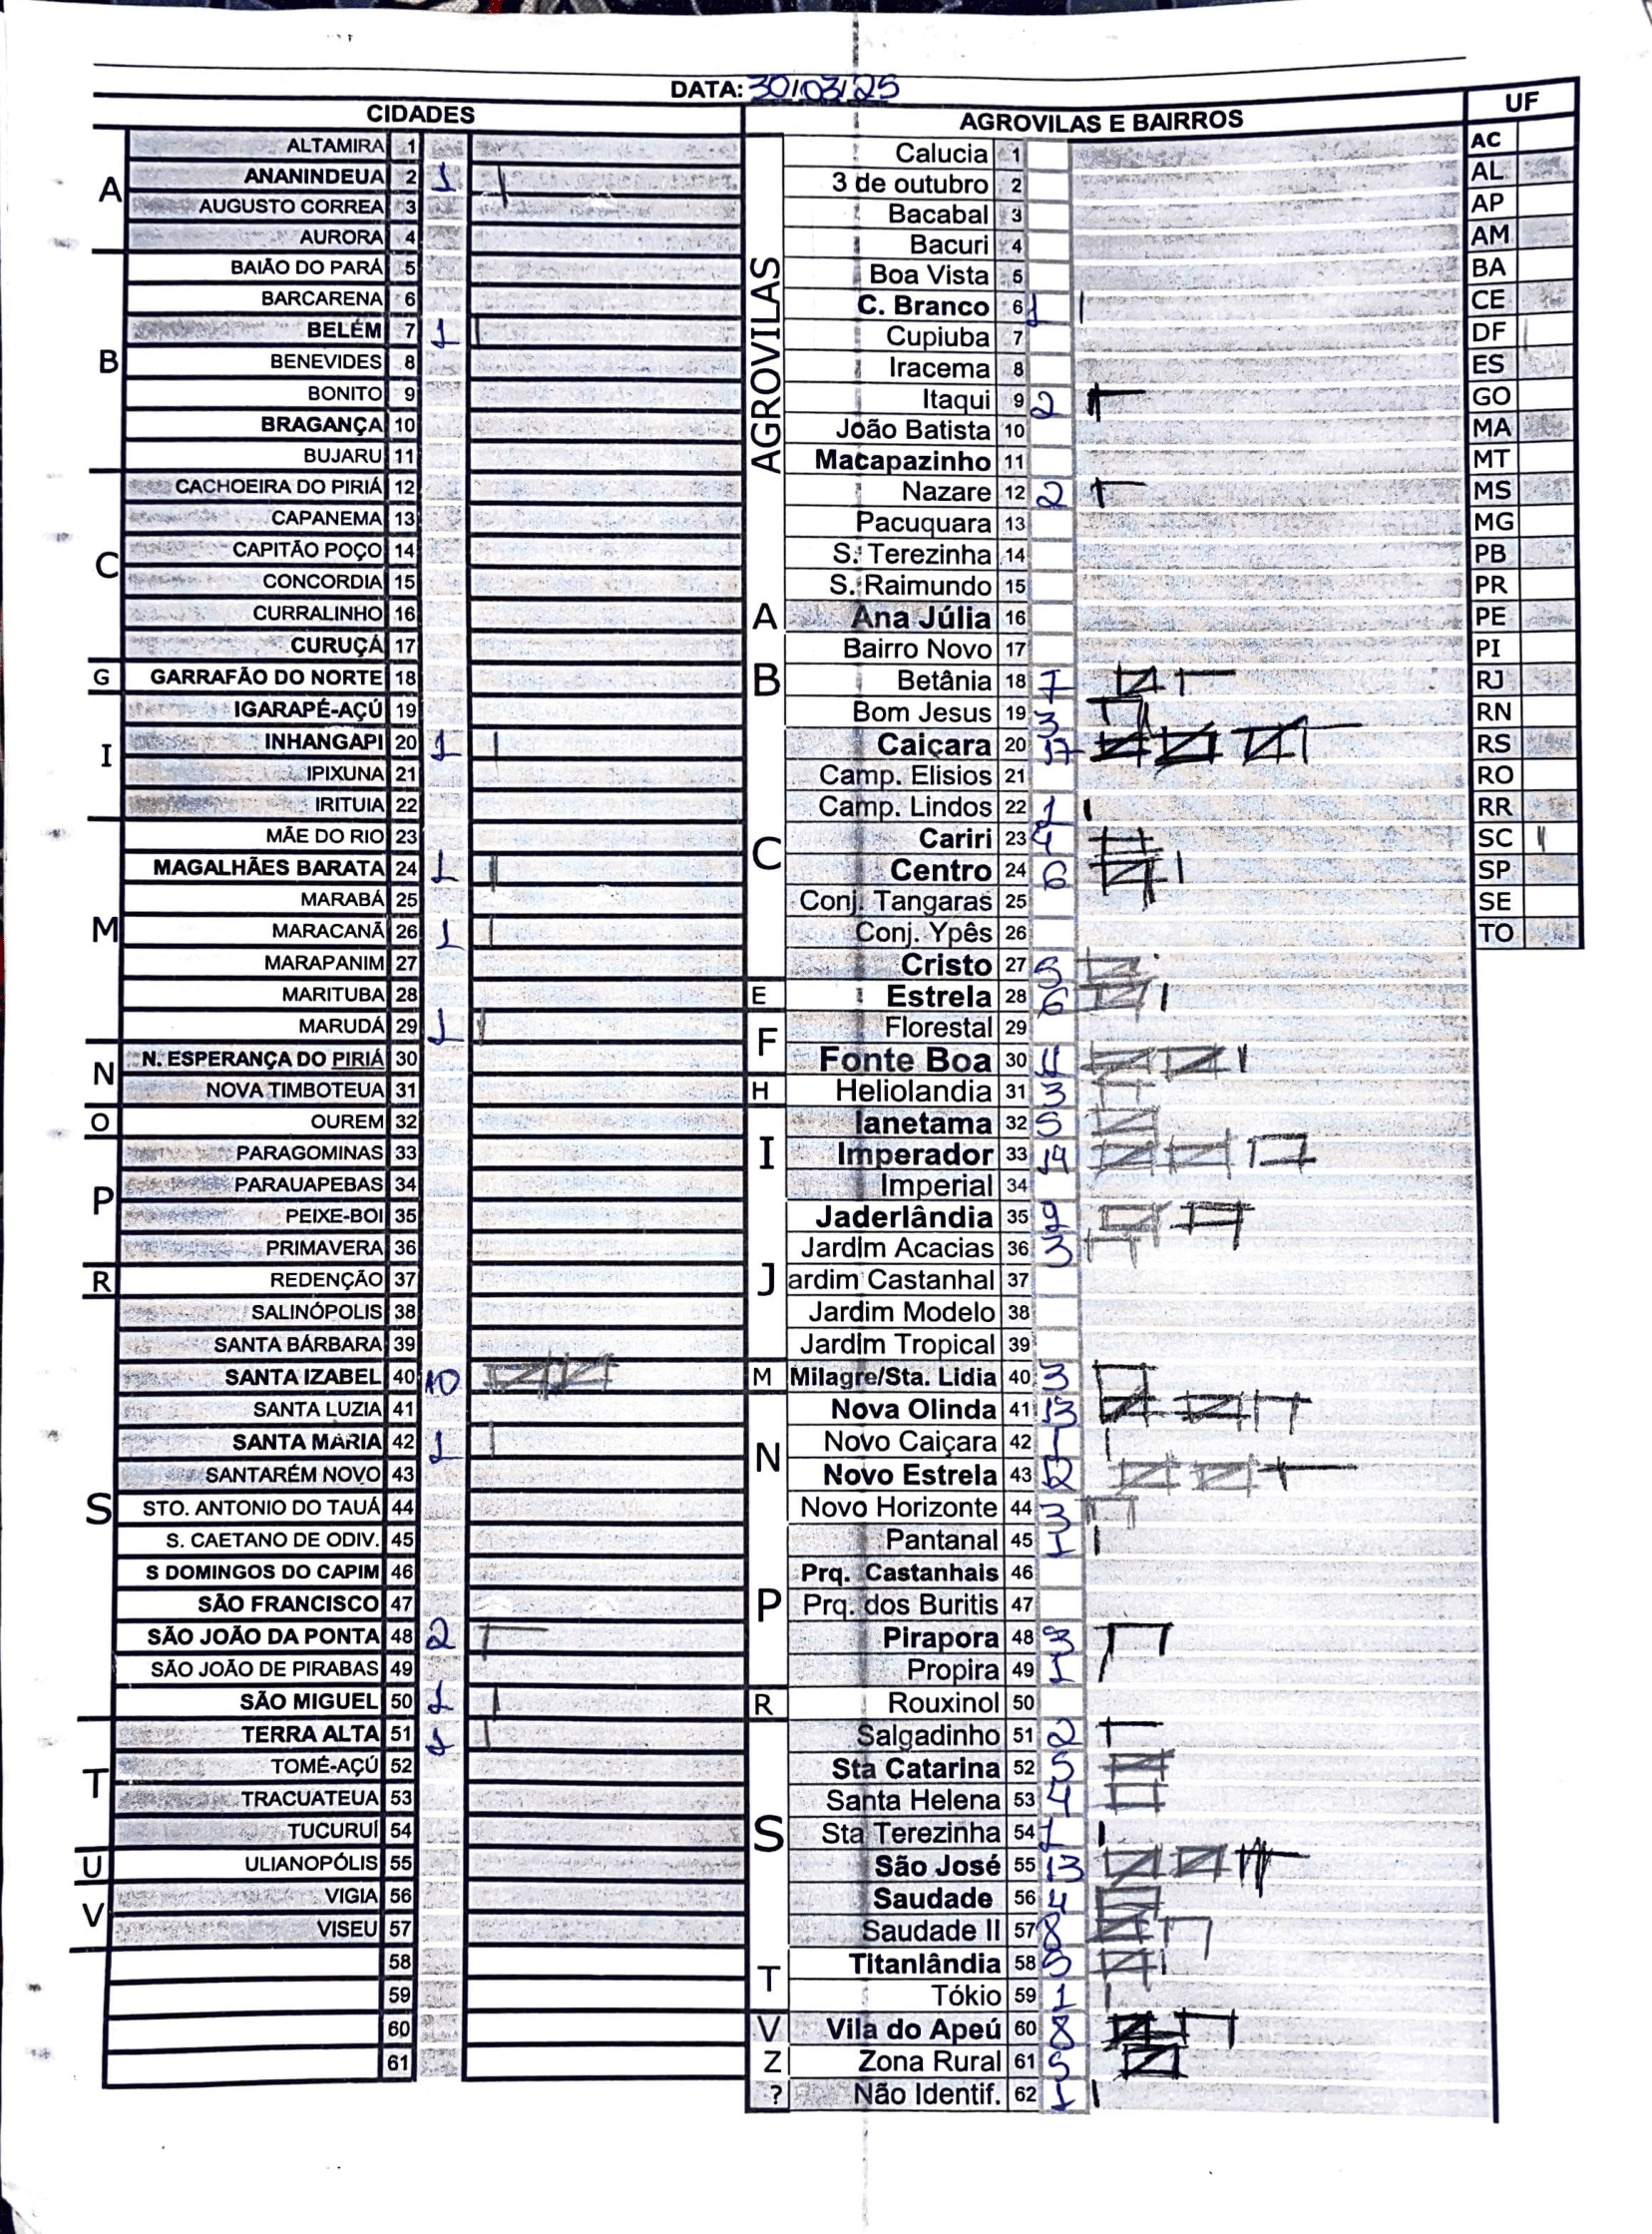 DATA: 30/03/25
CIDADES
A
ALTAMIRA 1
ANANINDEUA 2 1
AUGUSTO CORREA 3
AURORA 4
B
BAIÃO DO PARÁ 5
BARCARENA 6
BELÉM 7 1
BENEVIDES 8
BONITO 9
BRAGANÇA 10
BUJARU 11
C
CACHOEIRA DO PIRIÁ 12
CAPANEMA 13
CAPITÃO POÇO 14
CONCORDIA 15
CURRALINHO 16
CURUÇÁ 17
G
GARRAFÃO DO NORTE 18
I
IGARAPÉ-AÇÚ 19
INHANGAPI 20 1
IPIXUNA 21
IRITUIA 22
M
MÃE DO RIO 23
MAGALHÃES BARATA 24 1
MARABÁ 25
MARACANÃ 26 1
MARAPANIM 27
MARITUBA 28
MARUDÁ 29 1
N
N. ESPERANÇA DO PIRIÁ 30
NOVA TIMBOTEUA 31
O
OUREM 32
P
PARAGOMINAS 33
PARAUAPEBAS 34
PEIXE-BOI 35
PRIMAVERA 36
R
REDENÇÃO 37
S
SALINÓPOLIS 38
SANTA BÁRBARA 39
SANTA IZABEL 40 10
SANTA LUZIA 41
SANTA MARIA 42 1
SANTARÉM NOVO 43
STO. ANTONIO DO TAUÁ 44
S. CAETANO DE ODIV. 45
S DOMINGOS DO CAPIM 46
SÃO FRANCISCO 47
SÃO JOÃO DA PONTA 48 2
SÃO JOÃO DE PIRABAS 49
SÃO MIGUEL 50 1
T
TERRA ALTA 51 1
TOMÉ-AÇÚ 52
TRACUATEUA 53
TUCURUÍ 54
U
ULIANOPÓLIS 55
V
VIGIA 56
VISEU 57
58
59
60
61
AGROVILAS E BAIRROS
AGROVILAS
Calucia 1
3 de outubro 2
Bacabal 3
Bacuri 4
Boa Vista 5
C. Branco 6 1
Cupiuba 7
Iracema 8
Itaqui 9 2
João Batista 10
Macapazinho 11
Nazare 12 2
Pacuquara 13
S. Terezinha 14
S. Raimundo 15
A
Ana Júlia 16
B
Bairro Novo 17
Betânia 18 7
Bom Jesus 19 3
C
Caiçara 20 17
Camp. Elisios 21
Camp. Lindos 22 1
Cariri 23 4
Centro 24 6
Conj. Tangaras 25
Conj. Ypês 26
Cristo 27 5
E
Estrela 28 6
F
Florestal 29
Fonte Boa 30 11
H
Heliolandia 31 3
I
Ianetama 32 5
Imperador 33 14
Imperial 34
J
Jaderlândia 35 9
Jardim Acacias 36 3
ardim Castanhal 37
Jardim Modelo 38
Jardim Tropical 39
M
Milagre/Sta. Lidia 40 3
N
Nova Olinda 41 13
Novo Caiçara 42 1
Novo Estrela 43 12
Novo Horizonte 44 3
P
Pantanal 45 1
Prq. Castanhais 46
Prq. dos Buritis 47
Pirapora 48 3
Propira 49 1
R
Rouxinol 50
S
Salgadinho 51 2
Sta Catarina 52 5
Santa Helena 53 4
Sta Terezinha 54 1
São José 55 13
Saudade 56 4
Saudade II 57 8
T
Titanlândia 58 5
Tókio 59 1
V
Vila do Apeú 60 8
Z
Zona Rural 61 5
? Não Identif. 62 1
UF
AC
AL
AP
AM
BA
CE
DF
ES
GO
MA
MT
MS
MG
PB
PR
PE
PI
RJ
RN
RS
RO
RR
SC
SP
SE
TO